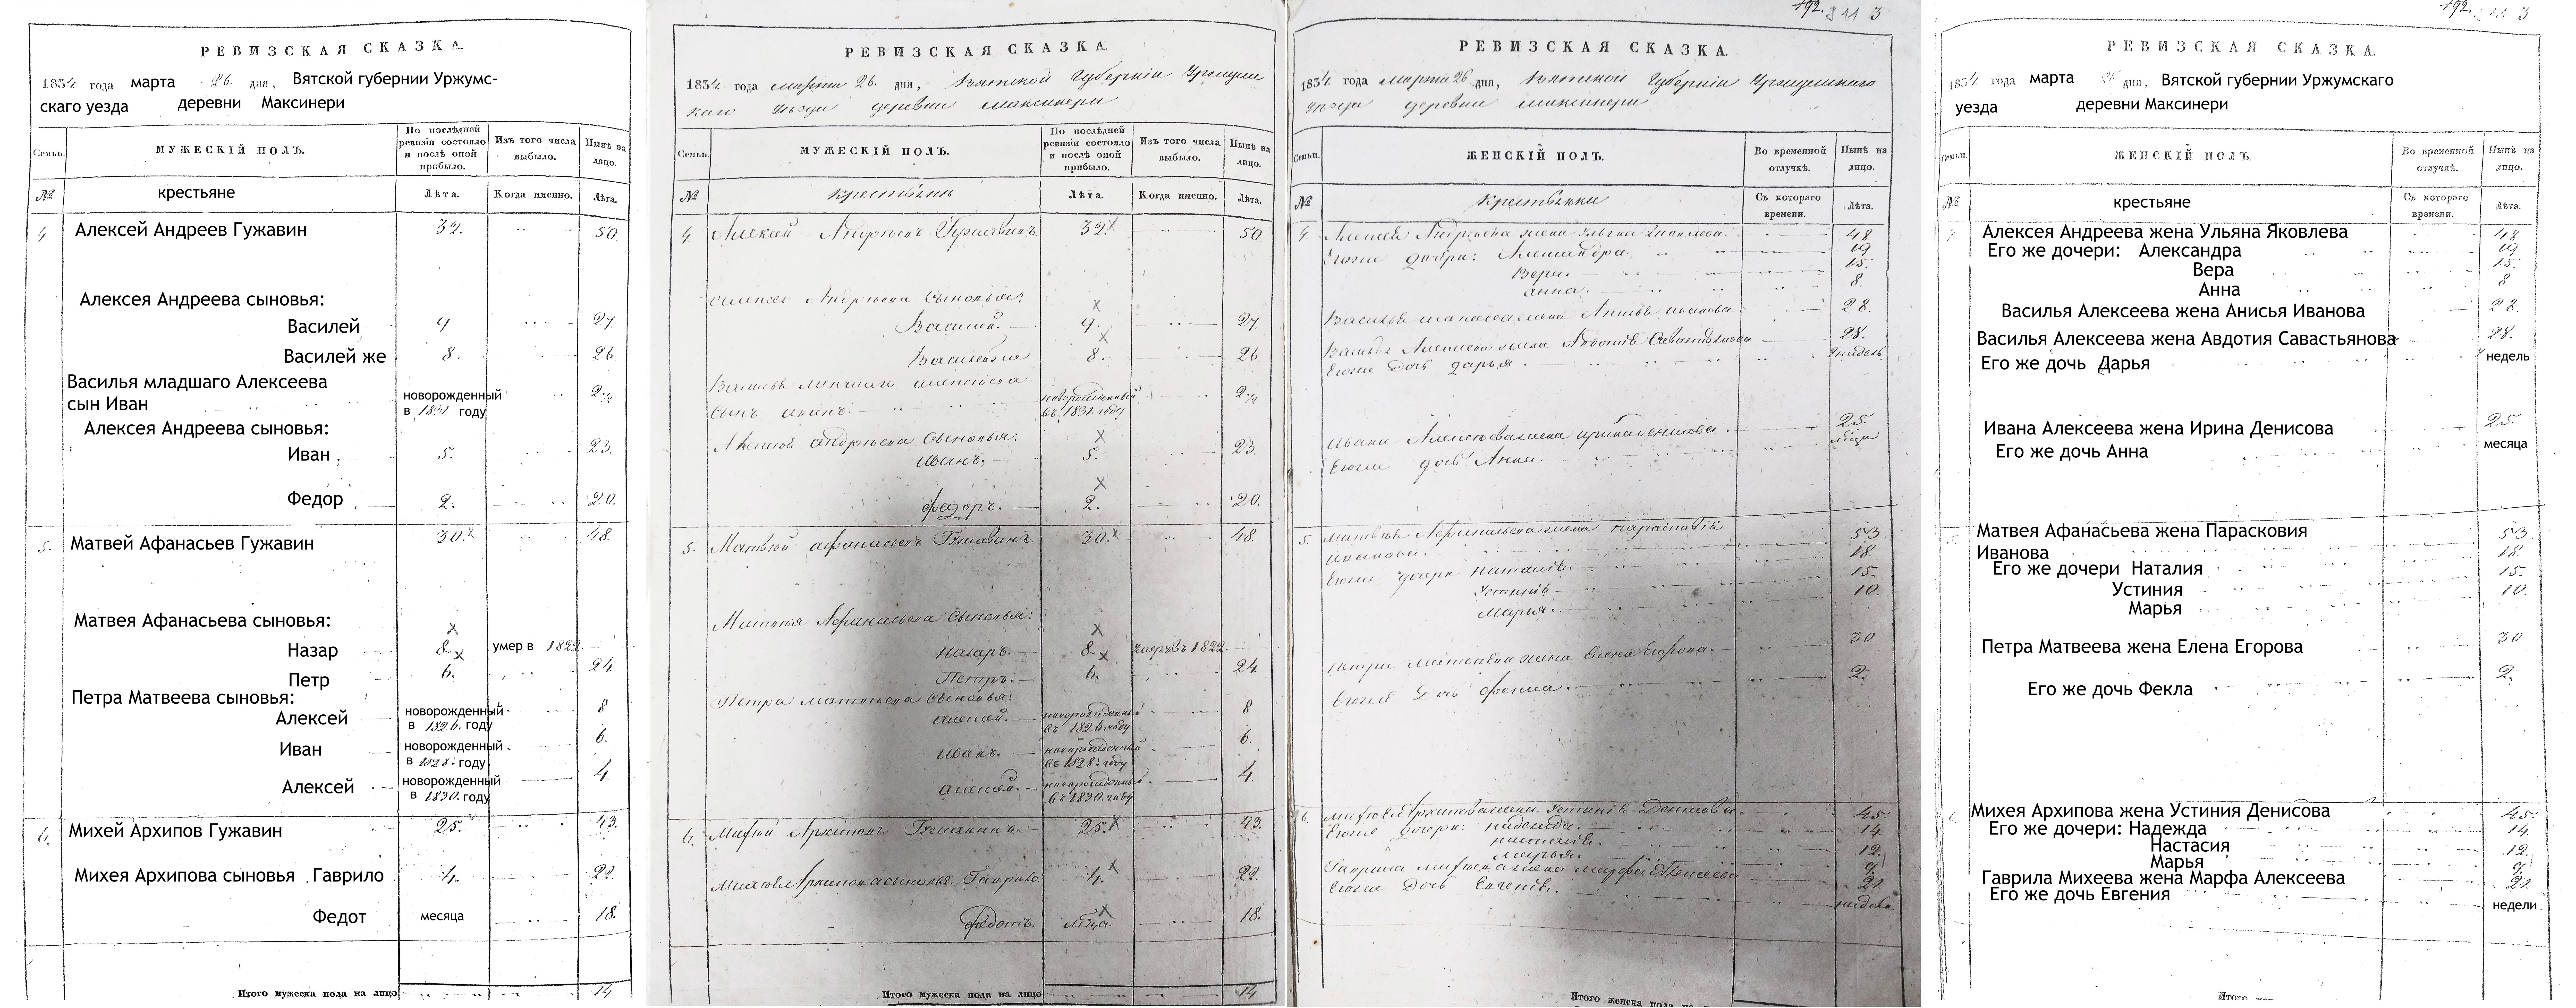 РЕВИЗСКАЯ СКАЗКА.
1834 года марта 26. дня, Вятской губернии Уржумс-
скаго уезда деревни Максинери
Семьи. МУЖЕСКІЙ ПОЛЪ. По послѣдней ревизіи состояло и послѣ оной прибыло. Изъ того числа выбыло. Нынѣ на лицо.
№ крестьяне Лѣта. Когда именно. Лѣта.
4 Алексей Андреев Гужавин 32. 50.
Алексея Андреева сыновья:
Василей 9 27.
Василей же 8. 26
Василья младшаго Алексеева
сын Иван новорожденный в 1831 году 2
Алексея Андреева сыновья:
Иван 5. 23.
Федор 2. 20.
5. Матвей Афанасьев Гужавин 30. 48.
Матвея Афанасьева сыновья:
Назар 8. умер в 1822.
Петр 6. 24
Петра Матвеева сыновья:
Алексей новорожденный в 1826. году 8
Иван новорожденный в 1828. году 6.
Алексей новорожденный в 1830. году 4
6. Михей Архипов Гужавин 25. 43.
Михея Архипова сыновья Гаврило 4. 22.
Федот месяца 18.
Итого мужеска пола на лицо 14
РЕВИЗСКАЯ СКАЗКА.
1834 года марта 26. дня, Вятской Губерніи Уржумс
каго Уезда деревни Максинери
Семьи. МУЖЕСКІЙ ПОЛЪ. По послѣдней ревизіи состояло и послѣ оной прибыло. Изъ того числа выбыло. Нынѣ на лицо.
№ Крестьяне Лѣта. Когда именно. Лѣта.
4 Алексей Андреевъ Гужавинъ 32. 50.
Алексея Андреева Сыновья:
Василей. 9. 27.
Василейже 8. 26
сынъ иванъ. новорожденный въ 1831. году 2
Алексея андреева Сыновья:
Иванъ. 5. 23.
Федоръ. 2. 20.
5. Матвей афанасьевъ Гужавинъ 30. 48.
Матвея Афанасьева Сыновья:
Назаръ. 8. умеръ въ 1822.
Петръ. 6. 24
Петра Матвеева Сыновья:
алексей. новорожденный въ 1826. году 8
иванъ. новорожденный въ 1828. году 6.
алексей. новорожденный въ 1830. году 4
6. Михей Архиповъ Гужавинъ. 25. 43.
Михея Архипова сыновья Гаврило 4. 22.
Федотъ. мца. 18.
Итого мужеска пола на лицо 14
192. 211 3
РЕВИЗСКАЯ СКАЗКА.
1834 года марта 26 дня, Вятской Губерніи Уржумскаго
Уезда деревни Максинери
Семьи. ЖЕНСКІЙ ПОЛЪ. Во временной отлучкѣ. Нынѣ на лицо.
№ Крестьянки Съ котораго времени. Лѣта.
4 Алексея Андреева жена Ульяна Яковлева 48
Егоже дочери: Александра 19
Вера. 15.
Анна. 8.
Василья Алексеева жена Анисья иванова 28.
Василья Алексеева жена Авдотья Савастьянова 28.
Егоже Дочь дарья. недель
Ивана Алексеева жена ирина денисова. 25.
Егоже дочь Анна. мца
5. Матвея Афанасьева жена парасковья 53
иванова. 18.
Егоже дочери Наталья. 15.
Устинья 10.
Марья.
Петра Матвеева жена Елена Егорова. 30
Егоже Дочь Фекла. 2.
6. Михея Архипова жена Устинья Денисова. 45.
Егоже дочери: надежда. 14.
настасья. 12.
марья. 9.
Гаврила михеева жена Марфа Алексеева 21.
Егоже Дочь Евгенья. недели
Итого женска пола на
192. 211 3
РЕВИЗСКАЯ СКАЗКА.
1834 года марта дня, Вятской губернии Уржумскаго
уезда деревни Максинери
Семьи. ЖЕНСКІЙ ПОЛЪ. Во временной отлучкѣ. Нынѣ на лицо.
№ крестьяне Съ котораго времени. Лѣта.
Алексея Андреева жена Ульяна Яковлева 48
Его же дочери: Александра 19
Вера 15.
Анна 8
Василья Алексеева жена Анисья Иванова 28.
Василья Алексеева жена Авдотия Савастьянова 28.
Его же дочь Дарья недель
Ивана Алексеева жена Ирина Денисова 25.
Его же дочь Анна месяца
5. Матвея Афанасьева жена Парасковия 53
Иванова 18.
Его же дочери Наталия 15.
Устиния 10.
Марья
Петра Матвеева жена Елена Егорова 30
Его же дочь Фекла 2.
6. Михея Архипова жена Устиния Денисова 45.
Его же дочери: Надежда 14.
Настасия 12.
Марья 9.
Гаврила Михеева жена Марфа Алексеева 21.
Его же дочь Евгения недели
Итого